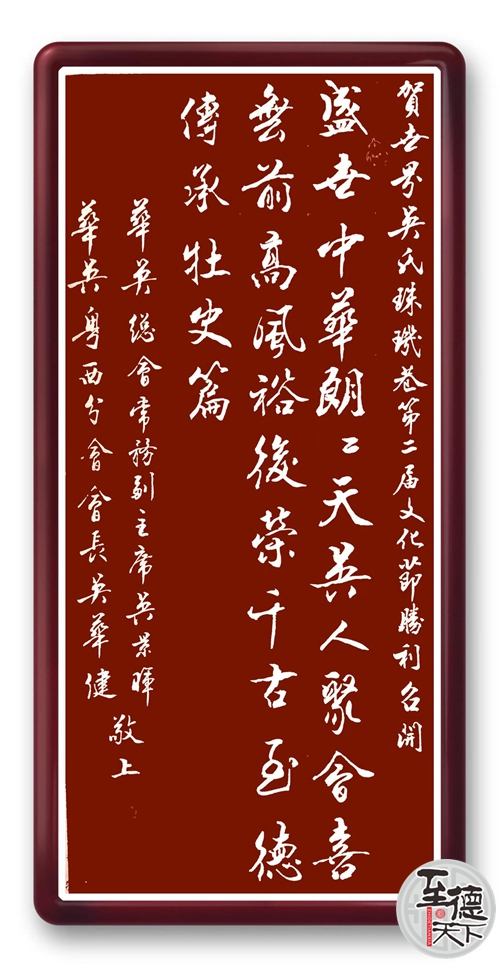 賀世界吴氏珠璣巷第二届文化節勝利召開
盛世中華朗〻天吴人聚會喜
無前高風裕後榮千古至德
傳承壮史篇
華吴總會常務副主席吴景暉
華吴粤西分會會長吴華健
敬上
至德天下